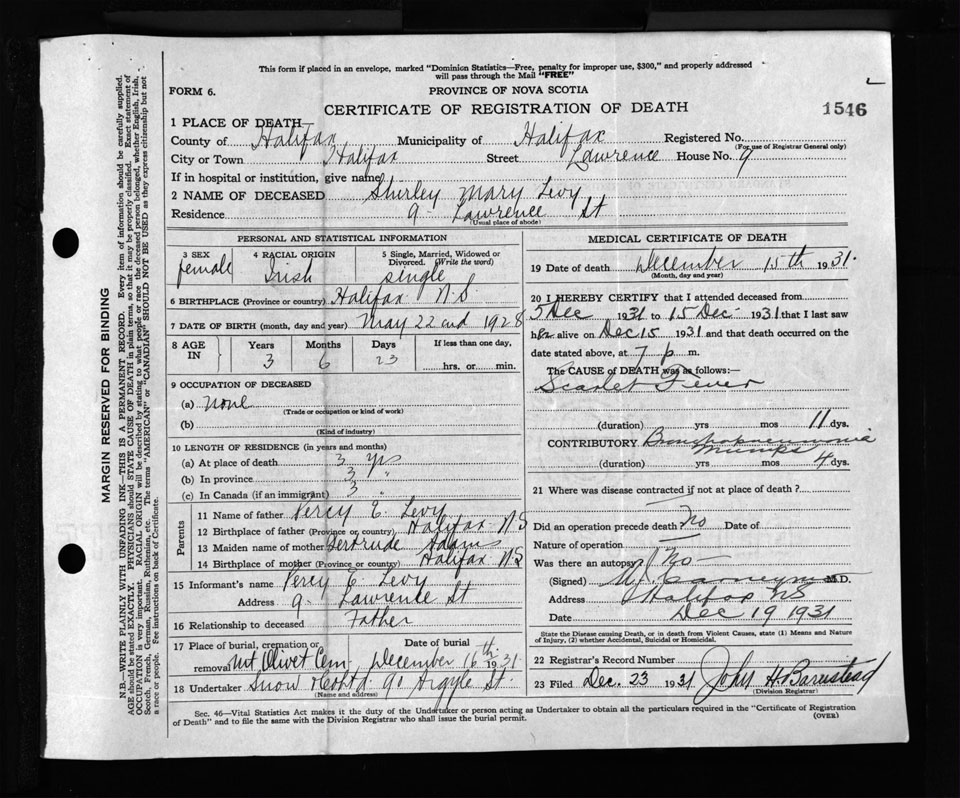 This form if placed in an envelope, marked "Dominion Statistics—Free, penalty for improper use, $300," and properly addressed
will pass through the Mail "FREE"
FORM 6.
PROVINCE OF NOVA SCOTIA
CERTIFICATE OF REGISTRATION OF DEATH
1546
1 PLACE OF DEATH—
County of Halifax Municipality of Halifax Registered No.
(For use of Registrar General only)
City or Town Halifax Street Lawrence House No. 9
If in hospital or institution, give name
2 NAME OF DECEASED Shirley Mary Levy
Residence 9 - Lawrence St
(Usual place of abode)
PERSONAL AND STATISTICAL INFORMATION
3 SEX female
4 RACIAL ORIGIN Irish
5 Single, Married, Widowed or Divorced. (Write the word) single
6 BIRTHPLACE (Province or country) Halifax N.S.
7 DATE OF BIRTH (month, day and year) May 22nd 1928
8 AGE IN
Years Months Days If less than one day,
3 6 23 hrs. or min.
9 OCCUPATION OF DECEASED
(a) none
(Trade or occupation or kind of work)
(b)
(Kind of industry)
10 LENGTH OF RESIDENCE (in years and months)
(a) At place of death 3 yrs
(b) In province 3 "
(c) In Canada (if an immigrant) 3 "
Parents
11 Name of father Percy E. Levy
12 Birthplace of father (Province or country) Halifax N.S
13 Maiden name of mother Gertrude Adams
14 Birthplace of mother (Province or country) Halifax N.S
15 Informant's name Percy E Levy
Address 9 - Lawrence St
16 Relationship to deceased Father
17 Place of burial, cremation or removal Mt Olivet Cem Date of burial December 16th 1931
18 Undertaker Snow & Co Ltd. 90 Argyle St.
(Name and address)
MEDICAL CERTIFICATE OF DEATH
19 Date of death December 15th 1931.
(Month, day and year)
20 I HEREBY CERTIFY that I attended deceased from
5 Dec 1931 to 15 Dec - 1931 that I last saw
her alive on Dec 15 1931 and that death occurred on
date stated above, at 7 p. m.
The CAUSE of DEATH was as follows:—
Scarlet Fever
(duration) yrs mos 11 dys.
CONTRIBUTORY Bronchopneumonia
Mumps
(duration) yrs mos 4 dys.
21 Where was disease contracted if not at place of death?
Did an operation precede death? No Date of
Nature of operation
Was there an autopsy? No
(Signed) M.D.
Address Halifax NS
Date Dec 19 1931
State the Disease causing Death, or in death from Violent Causes, state (1) Means and Nature
of Injury, (2) whether Accidental, Suicidal or Homicidal.
22 Registrar's Record Number
23 Filed Dec. 23 1931 John H Barnstead
(Division Registrar)
Sec. 46—Vital Statistics Act makes it the duty of the Undertaker or person acting as Undertaker to obtain all the particulars required in the "Certificate of Registration
of Death" and to file the same with the Division Registrar who shall issue the burial permit.
(OVER)
MARGIN RESERVED FOR BINDING
N.B.—WRITE PLAINLY WITH UNFADING INK—THIS IS A PERMANENT RECORD. Every item of information should be carefully supplied.
AGE should be stated EXACTLY. PHYSICIANS should STATE CAUSE OF DEATH in plain terms, so that it may be properly classified. Exact statement of
OCCUPATION is very important. RACIAL ORIGIN will be described by stating to what people or race the deceased person belonged, whether English, Irish,
Scotch, French, German, Russian, Ruthenian, etc. The terms "AMERICAN" or "CANADIAN" SHOULD NOT BE USED as they express citizenship but not
a race or people. See instructions on back of Certificate.